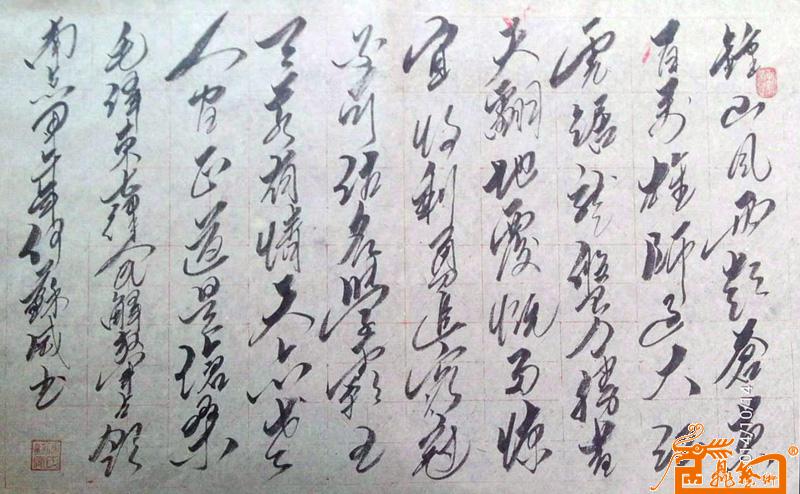 鍾山风雨起蒼黄
百万雄师过大江
虎踞龙盘今勝昔
天翻地覆慨而慷
宜将剩勇追穷寇
不可沽名學霸王
天若有情天亦老
人间正道是滄桑
毛泽东七律人民解放军占领
南京甲午年何蘇成书
2014/10/14